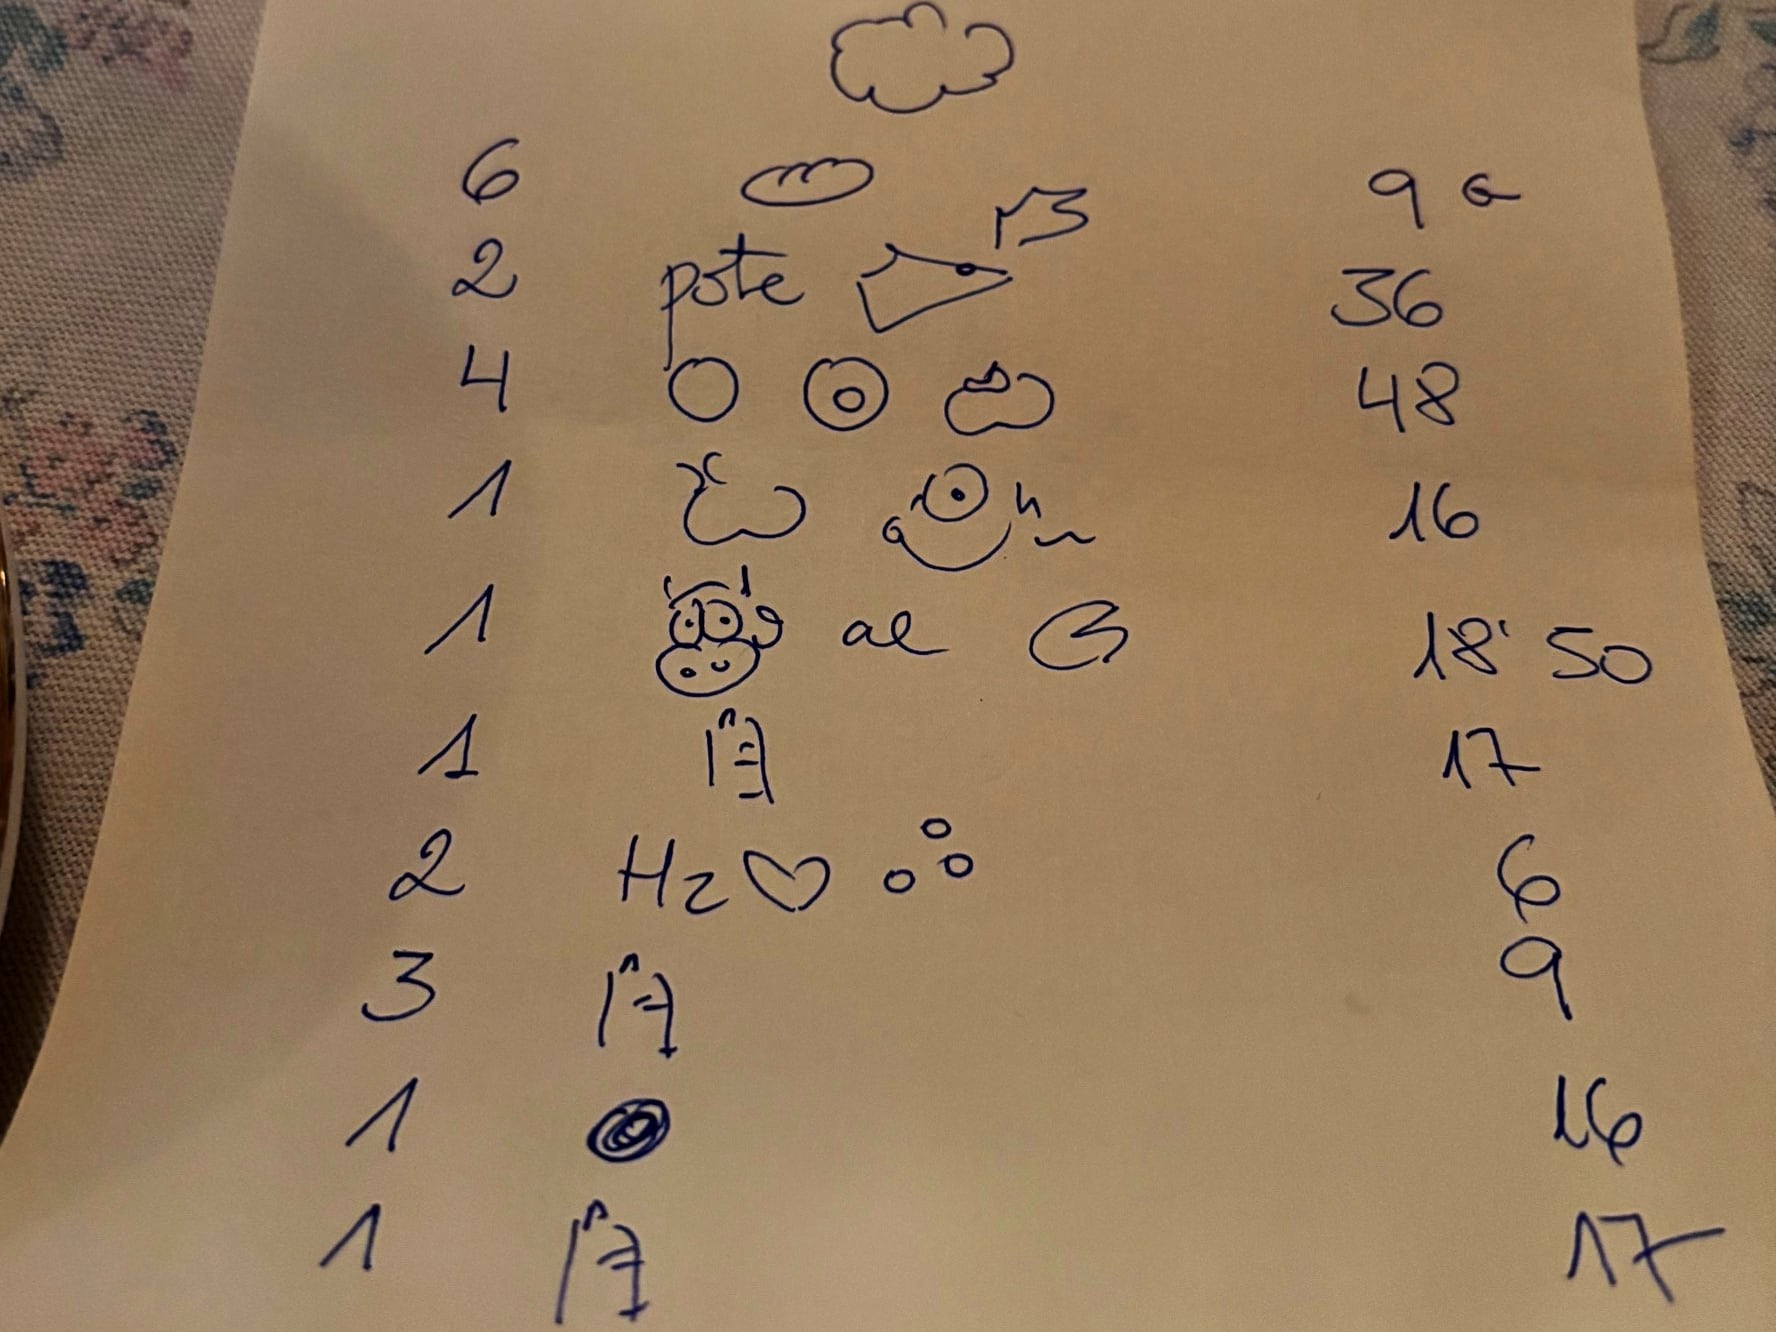 6 9 €
2 pote √3 36
4 48
1 16
1 al 18'50
1 17
2 H2 6
3 9
1 16
1 17